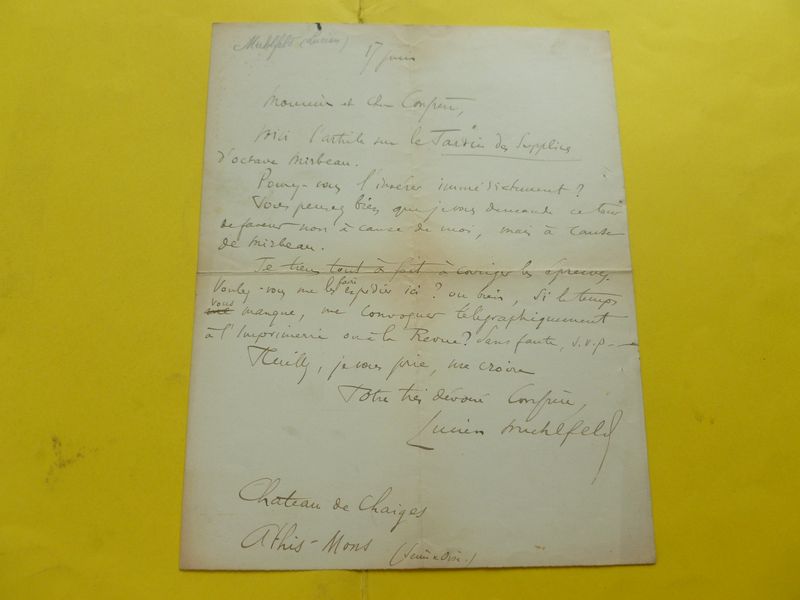 Muhlfeld (Lucien)
17 juin
Monsieur et cher Confrère,
Voici l'article sur le Jardin des Supplices
d'Octave Mirbeau.
Pouvez-vous l'insérer immédiatement ?
Vous pensez bien que je vous demande ce tour
de faveur non à cause de moi, mais à cause
de Mirbeau.
Je tiens tout à fait à corriger les épreuves.
Voulez-vous me les faire expédier ici ? ou bien, si le temps
vous manque, me convoquer télégraphiquement
à l'Imprimerie ou à la Revue ? Sans faute, s.v.p. —
Veuillez, je vous prie, me croire
Votre très dévoué Confrère,
Lucien Muhlfeld
Chateau de Chaiges
Athis-Mons (Seine & Oise.)